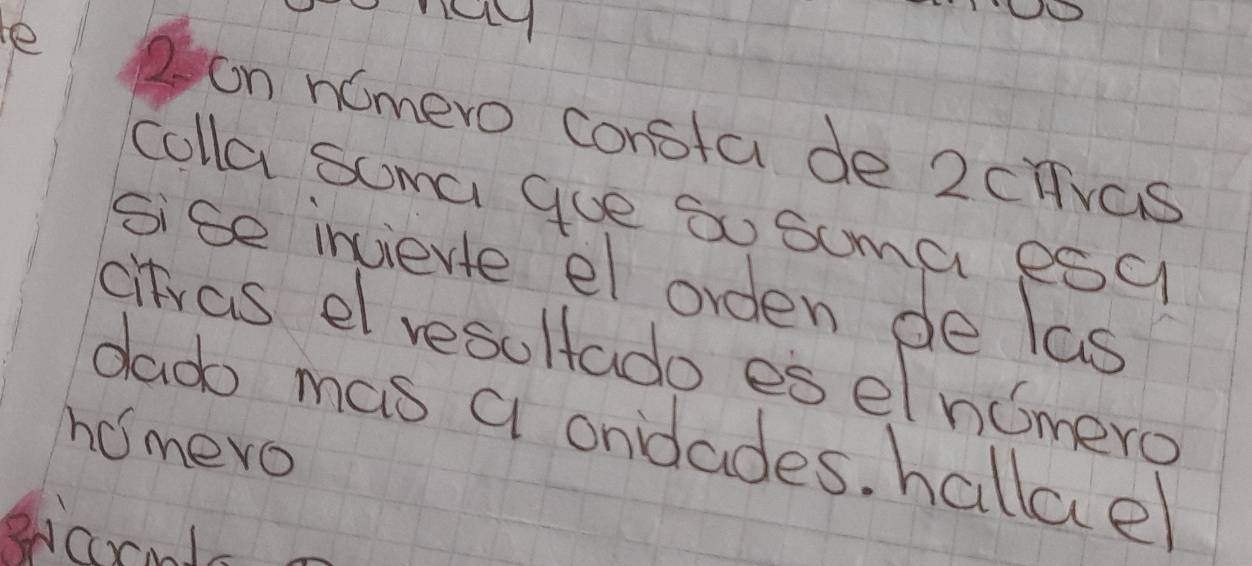 2. un número consta de 2 cifras
culla suma que su suma es 9
si se invierte el orden de las
cifras el resultado es el número
dado mas 9 unidades. halla el
número